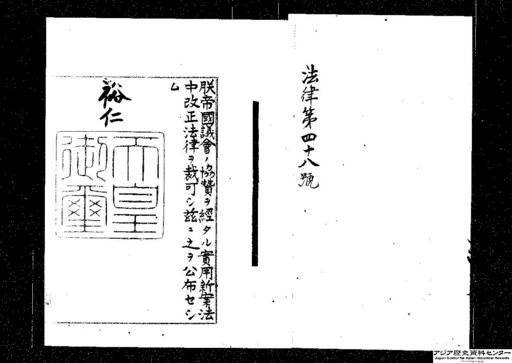 法律第四十八號
朕帝國議會ノ協贊ヲ經タル實用新案法
中改正法律ヲ裁可シ玆ニ之ヲ公布セシ
ム
裕仁
天皇
御璽
アジア歴史資料センター
Japan Center for Asian Historical Records